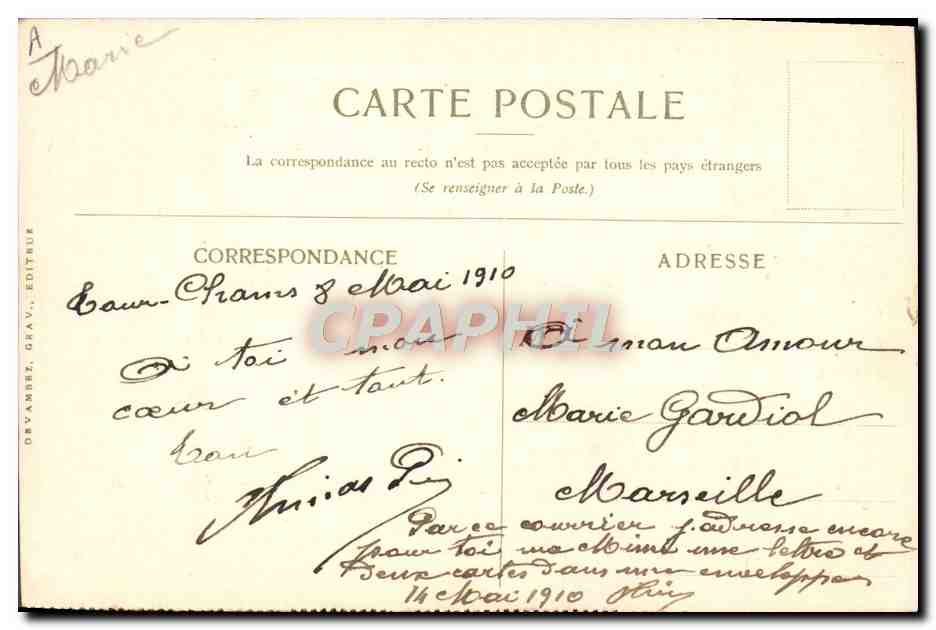 A
Marie
CARTE POSTALE
La correspondance au recto n'est pas acceptée par tous les pays étrangers
(Se renseigner à la Poste.)
DEVAMBEZ, GRAV., EDITEUR
CORRESPONDANCE
8 Mai 1910
A toi mon
cœur et tout.
Ton
ADRESSE
A mon Amour
Marie Gardiol
Marseille
Par ce courrier j'adresse encore
pour toi ma Mimi une lettre et
Deux cartes dans une enveloppe
14 Mai 1910
CPAPHIL